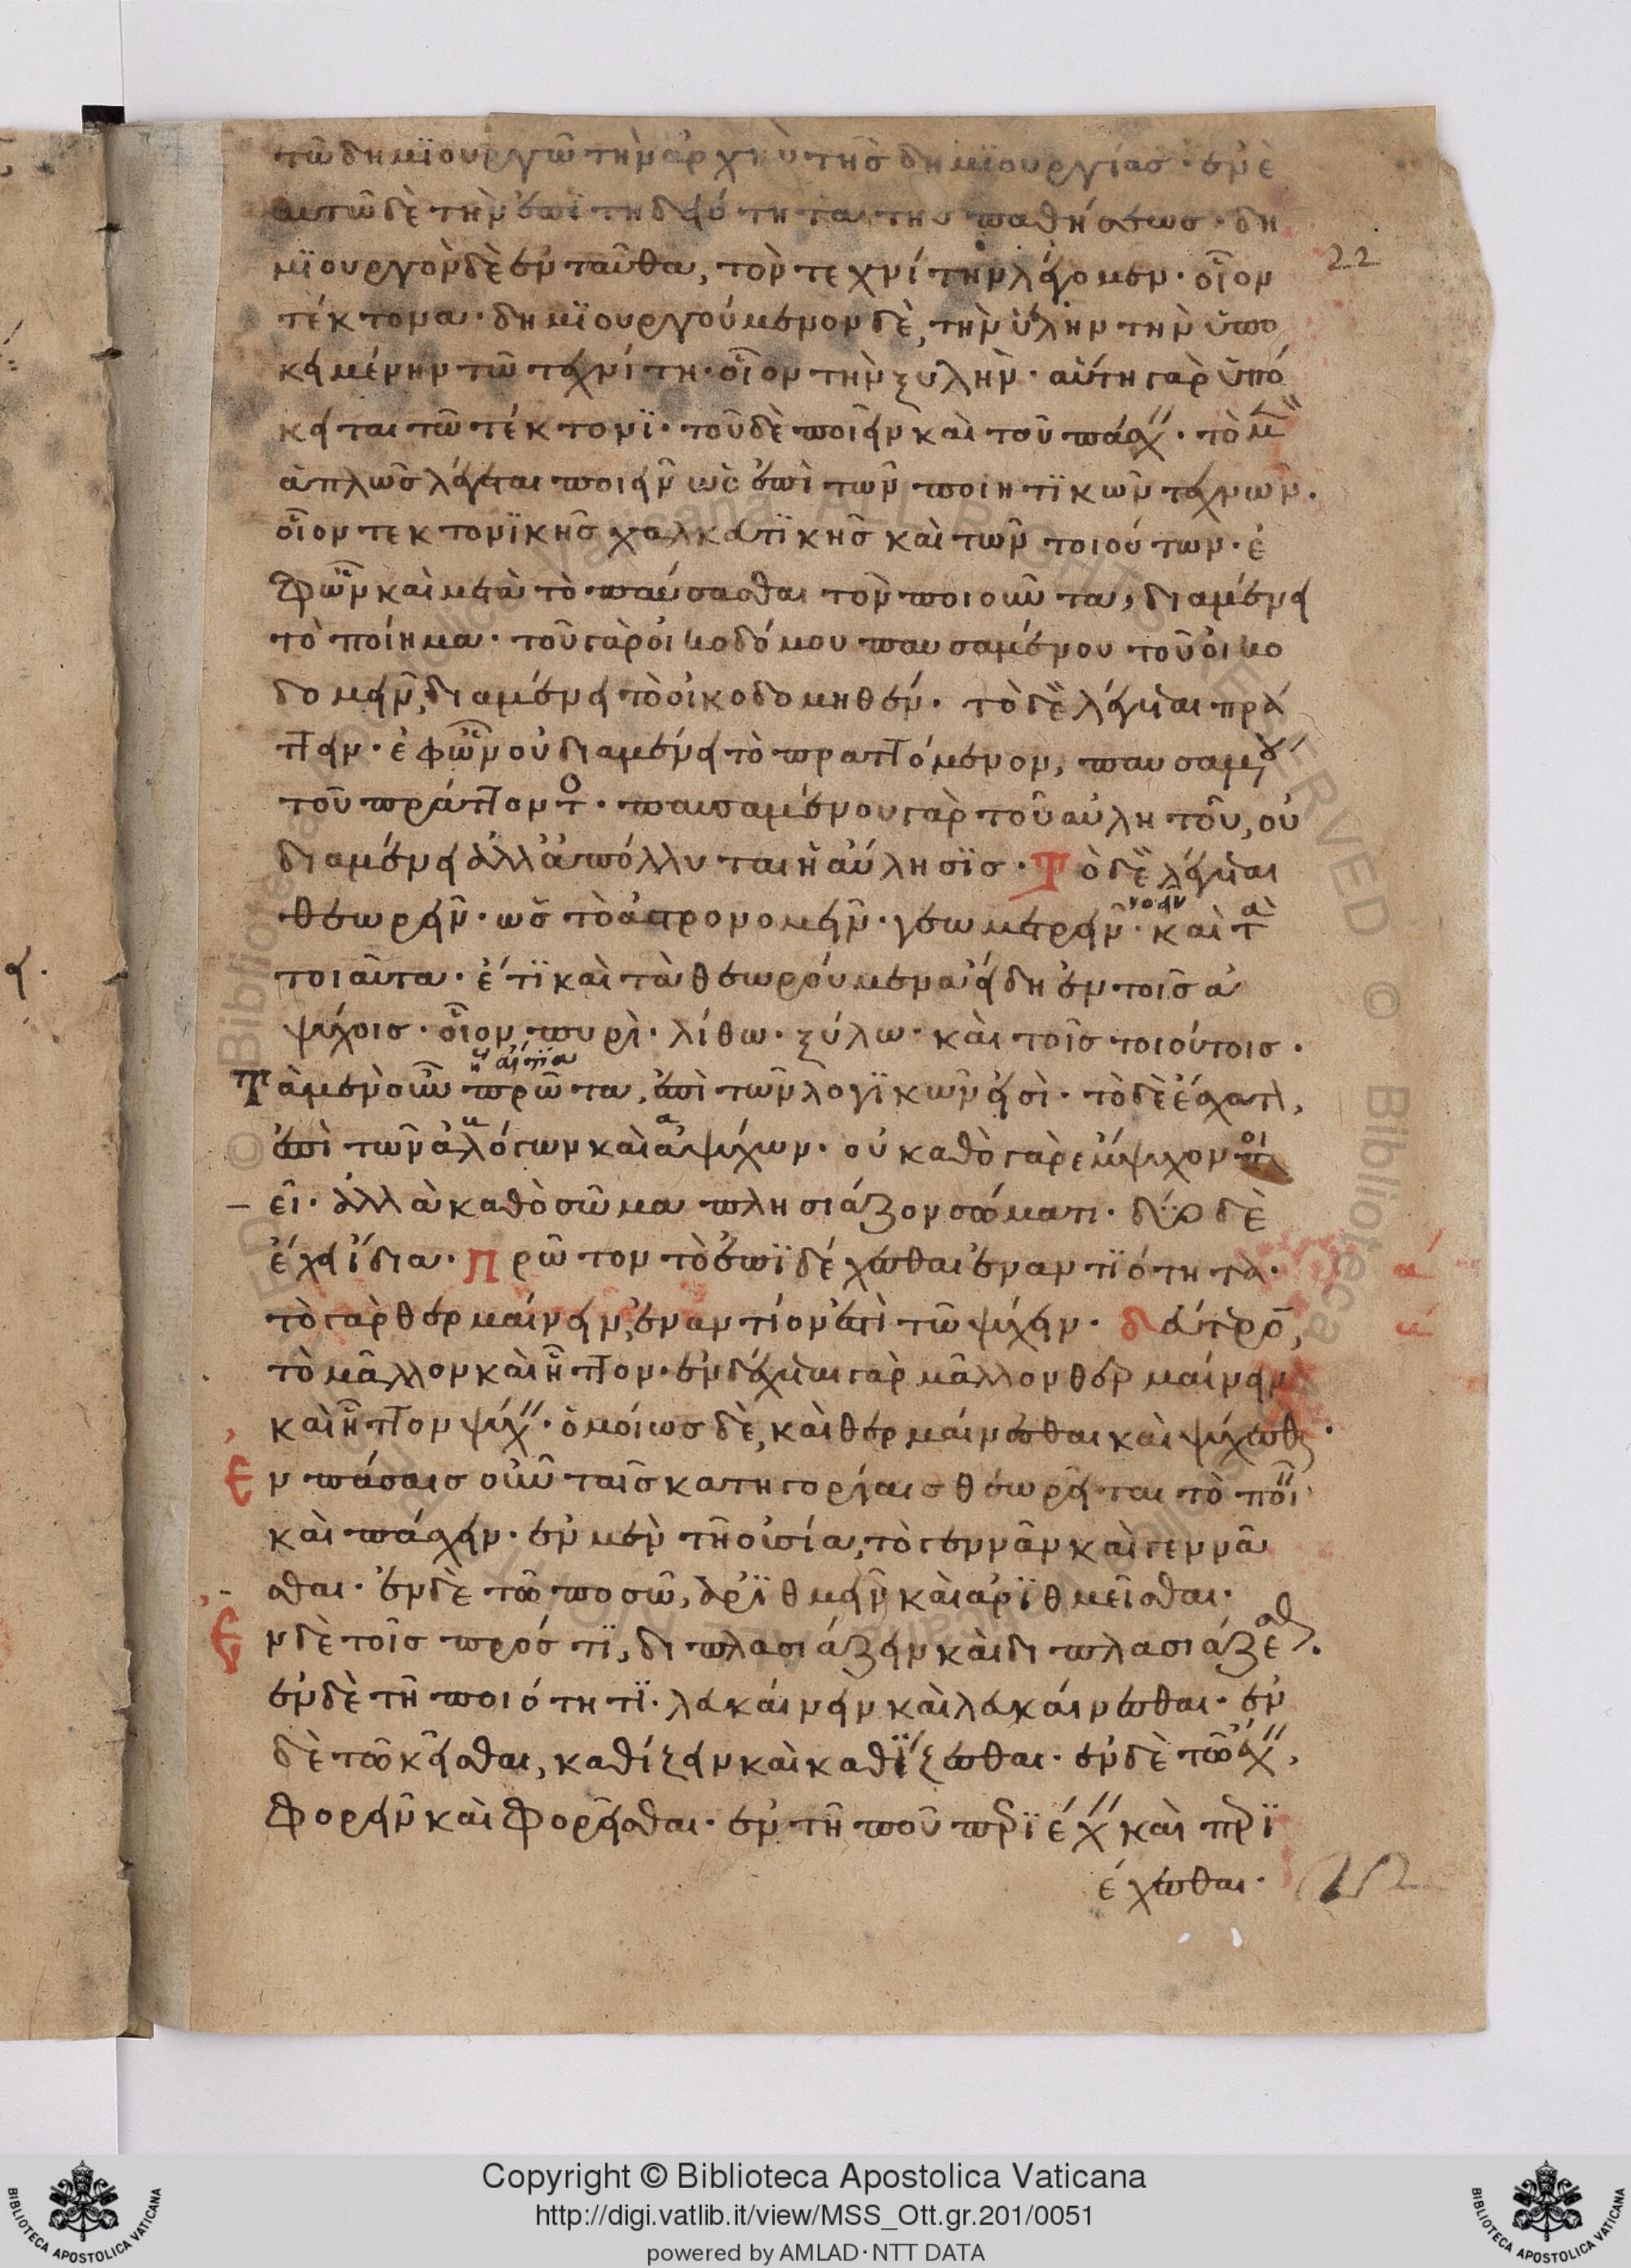 τῶ δημϊουργῶ τὴν ἀρχὴν τῆς δημϊουργίας· ἐν ἑ
αυτῶ δὲ τὴν ἐπϊτηδειότητα τῆς παθήσεως· δη
μϊουργὸν δὲ ἐνταῦθα, τὸν τεχνίτην λέγομεν· οἷον
τέκτονα· δημϊουργούμενον δὲ, τὴν ὕλην τὴν ὑπο
κειμένην τῶ τεχνίτη· οἷον τὴν ξυλὴν· αὕτη γὰρ ὑπό
κειται τῶ τέκτονϊ· τοῦ δὲ ποιεῖν καὶ τοῦ πάσχ· τὸ μ
ἁπλῶς λέγεται ποιεῖν ὡς ἐπὶ τῶν ποιητϊκῶν τεχνῶν·
οἷον τεκτονϊκῆς χαλκευτϊκῆς καὶ τῶν τοιούτων· ἐ
φῶν καὶ μετὰ τὸ παύσασθαι τὸν ποιοῦντα, διαμένει
τὸ ποίημα· τοῦ γὰρ οἰκοδόμου παυσαμένου τοῦ οἰκο
δομεῖν, διαμένει τὸ οἰκοδομηθέν· τὸ δὲ λέγεται πρά
ττειν· ἐφῶν οὐ διαμένει τὸ πραττόμενον, παυσαμου
τοῦ πράττοντο· παυσαμένου γὰρ τοῦ αὐλητοῦ, οὐ
διαμένει ἀλλἀπόλλυται ἡ αὔλησϊς· Τὸ δὲ λέγεται
θεωρεῖν· ὡς τὸ ἀστρονομεῖν· γεωμετρεῖν· νοεῖν καὶ τὰ
τοιαῦτα· ἔτϊ καὶ τὰ θεωρούμενα εἴδη ἐν τοῖς ἀ
ψύχοις· οἷον πυρὶ· λίθω· ξύλω· καὶ τοῖς τοιούτοις·
ἢ αἴτια
Τὰ μὲν οὖν πρῶτα, ἐπὶ τῶν λογϊκῶν εἰσὶ· τὸ δὲ ἔσχατ,
ἐπὶ τῶν ἀλόγων καὶ ἀψύχων· οὐ καθὸ γὰρ ἔμψυχον ποι
εῖ· ἀλλὰ καθὸ σῶμα πλησιάζον σώματι· δύο δὲ
ἔχει ἴδια· Πρῶτον τὸ ἐπϊδέχεσθαι ἐναντϊότητα·
τὸ γὰρ θερμαίνειν, ἐναντίον ἐστὶ τῶ ψύχειν· δεύτερο,
τὸ μᾶλλον καὶ ἧττον· ἐνδέχεται γὰρ μᾶλλον θερμαίνειν
καὶ ἧττον ψύχ· ὁμοίως δὲ, καὶ θερμαίνεσθαι καὶ ψύχεσθ·
Ἐν πάσαις οὖν ταῖς κατηγορίαις θεωρεῖται τὸ ποι
καὶ πάσχειν· ἐν μὲν τῆ οὐσία, τὸ γεννᾶν καὶ γεννᾶ
σθαι· ἐν δὲ τῶ ποσῶ, ἀρϊθμεῖν καὶ ἀρϊθμεῖσθαι·
Ἐν δὲ τοῖς πρός τϊ, διπλασιάζειν καὶ διπλασιάζεσθ.
ἐν δὲ τῆ ποιότητϊ· λευκαίνειν καὶ λευκαίνεσθαι· ἐν
δὲ τῶ κεῖσθαι, καθίζειν καὶ καθϊζεσθαι· ἐν δὲ τῶ ἔχ,
φορεῖν καὶ φορεῖσθαι· ἐν τῆ ποῦ περϊέχ καὶ περϊ
έχεσθαι·
22
Copyright © Biblioteca Apostolica Vaticana
http://digi.vatlib.it/view/MSS_Ott.gr.201/0051
powered by AMLAD·NTT DATA